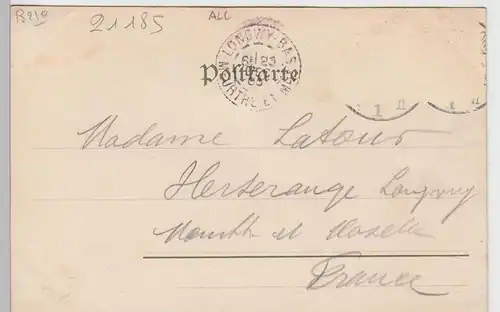 B210
21185
ALL
LONGWY-BAS
Postkarte
MEURTHE ET M
Madame Latour
Herserange Longwy
Meurthe et Moselle
France